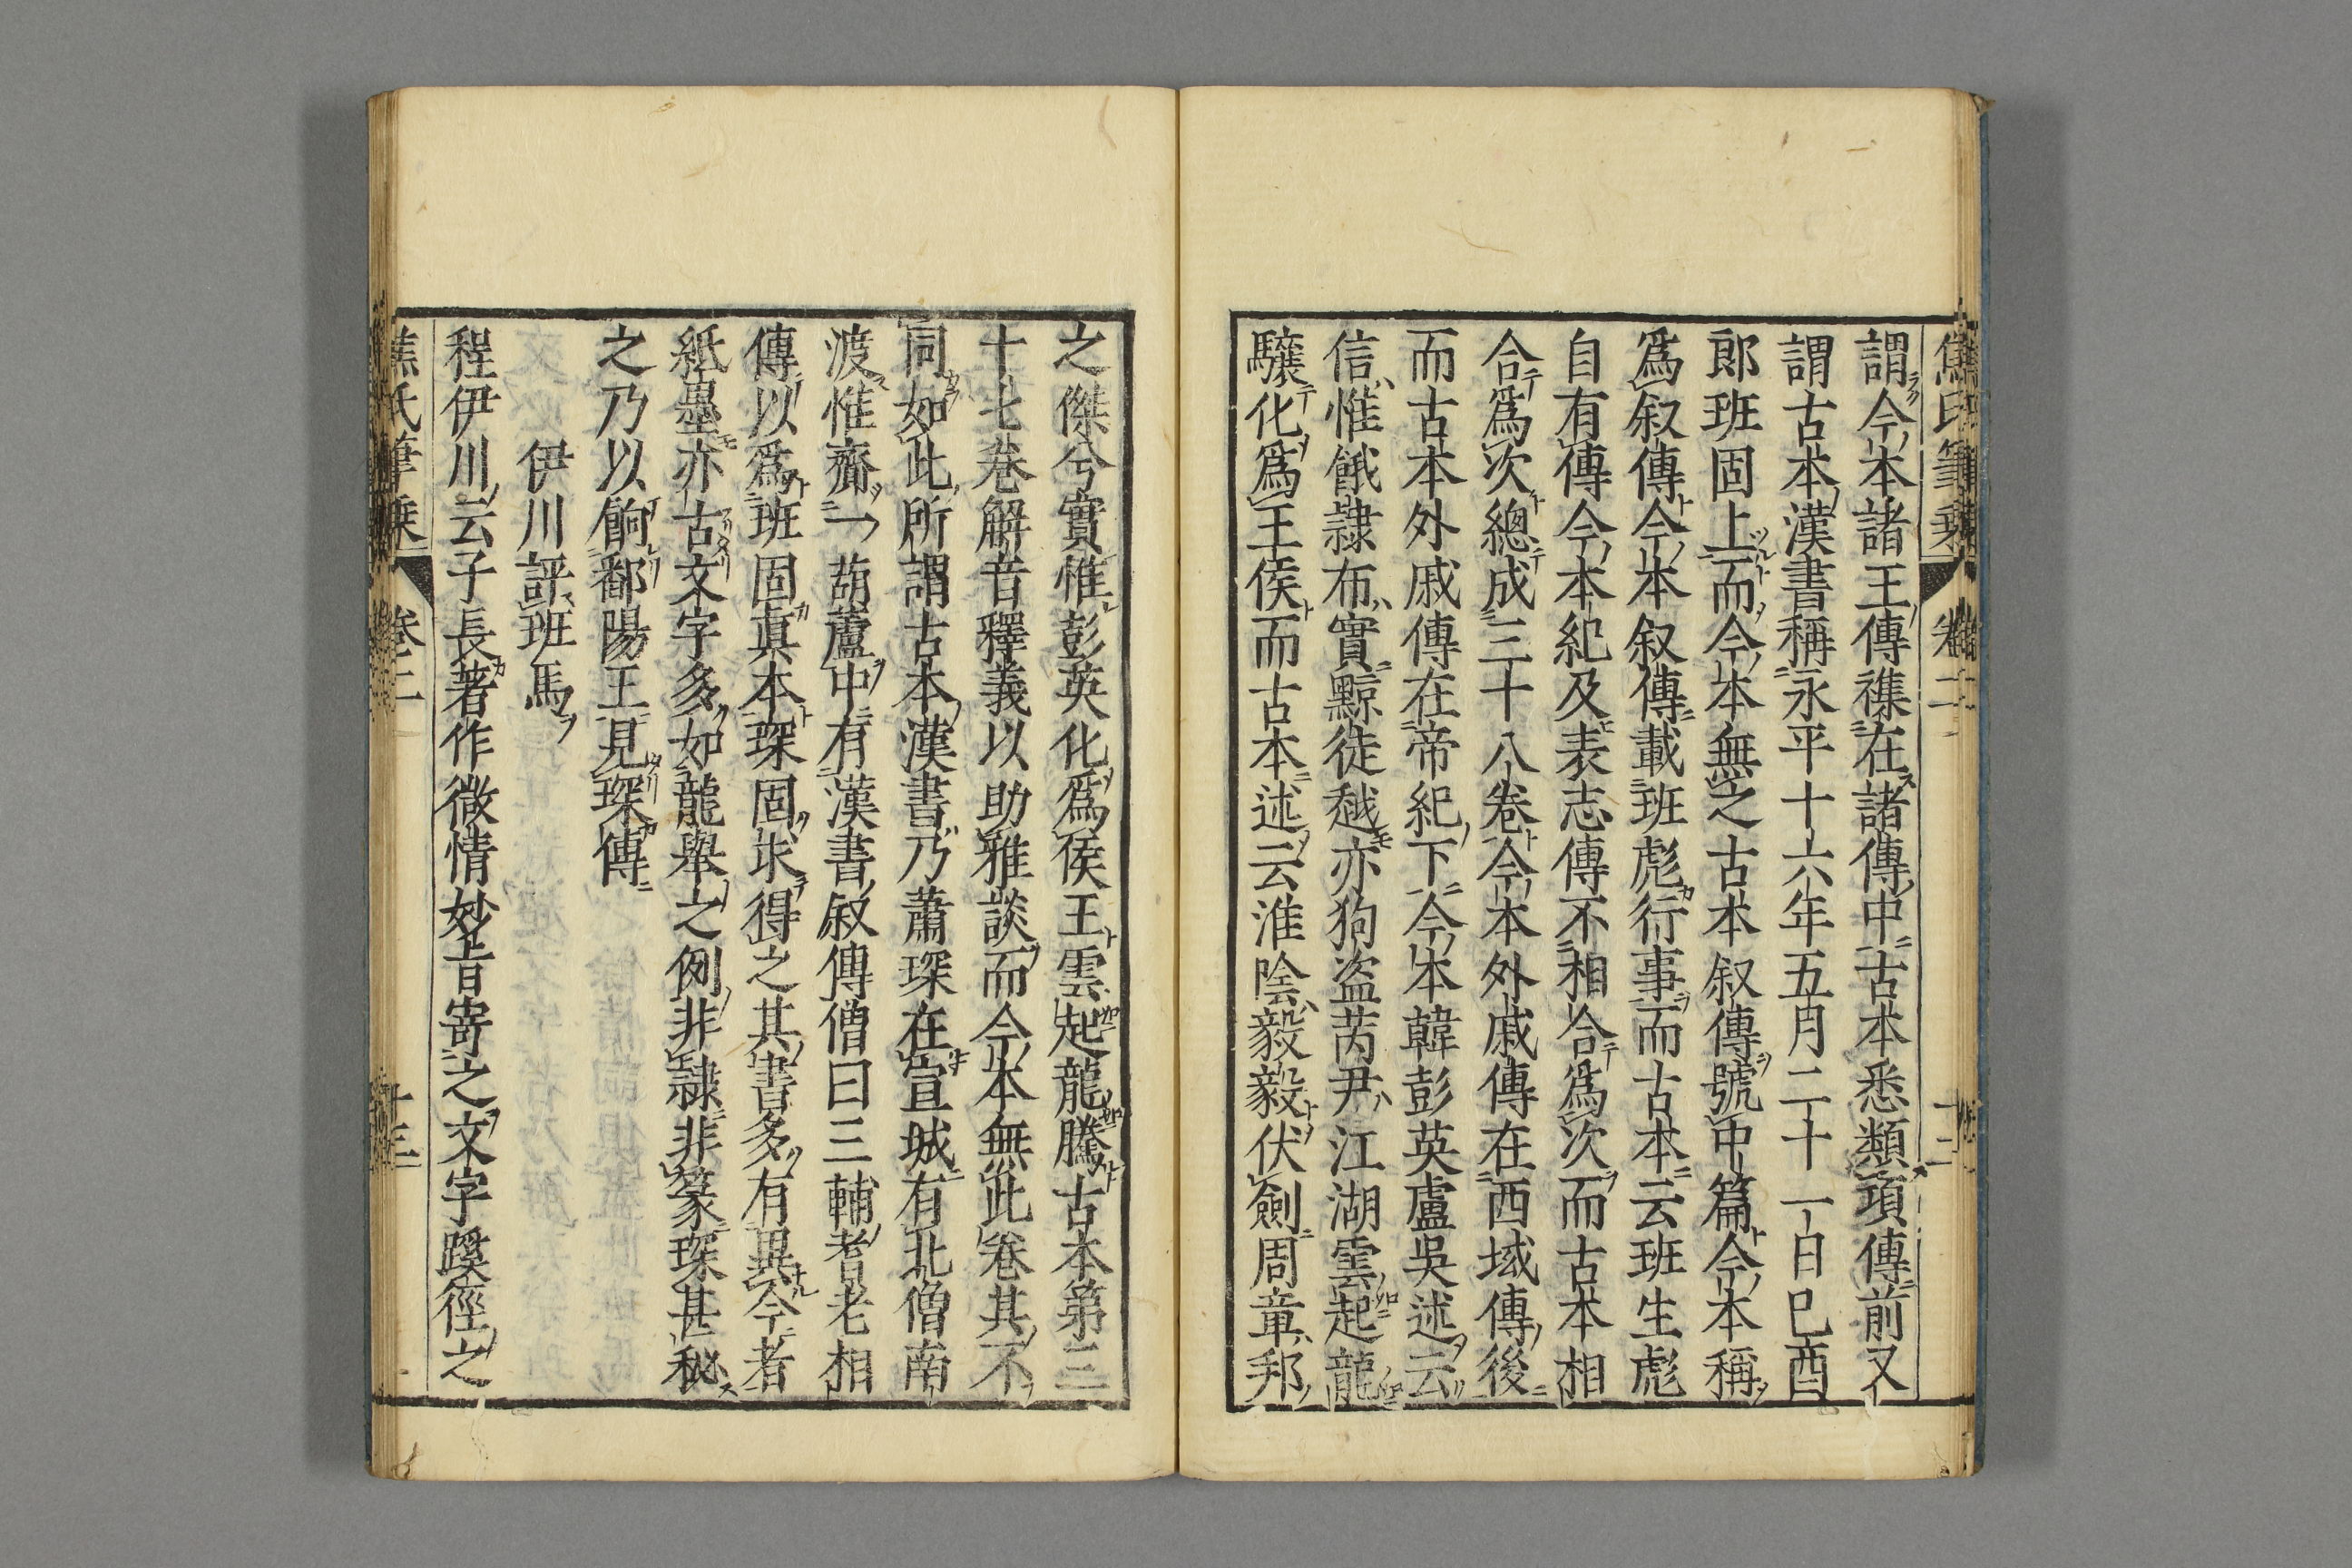 謂今本諸王傳襍在諸傳中古本悉類項傳前又
謂古本漢書稱永平十六年五月二十一日己酉
郎班固上而今本無之古本叙傳號中篇今本稱
爲叙傳今本叙傳載班彪行事而古本云班生彪
自有傳今本紀及表志傳不相合爲次而古本相
合爲次總成三十八卷今本外戚傳在西域傳後
而古本外戚傳在帝紀下今本韓彭英盧吳述云
信惟餓隷布實黥徒越亦狗盗芮尹江湖雲起龍
驤化爲王侯而古本述云淮陰毅毅伏劍周章邦
之傑兮實惟彭英化爲侯王雲起龍騰古本第三
十七巻解音釋義以助雅談而今本無此巻其不
同如此所謂古本漢書乃蕭琛在宣城有北僧南
渡惟齎一葫蘆中有漢書叙傳僧曰三輔耆老相
傳以爲班固真本琛固求得之其書多有異今者
紙墨亦古文字多如龍舉之例非隷非篆琛甚秘
之乃以餉鄱陽王見琛傳
伊川評班馬
程伊川云子長著作微情妙旨寄之文字蹊徑之
焦氏筆乗 卷二 十三